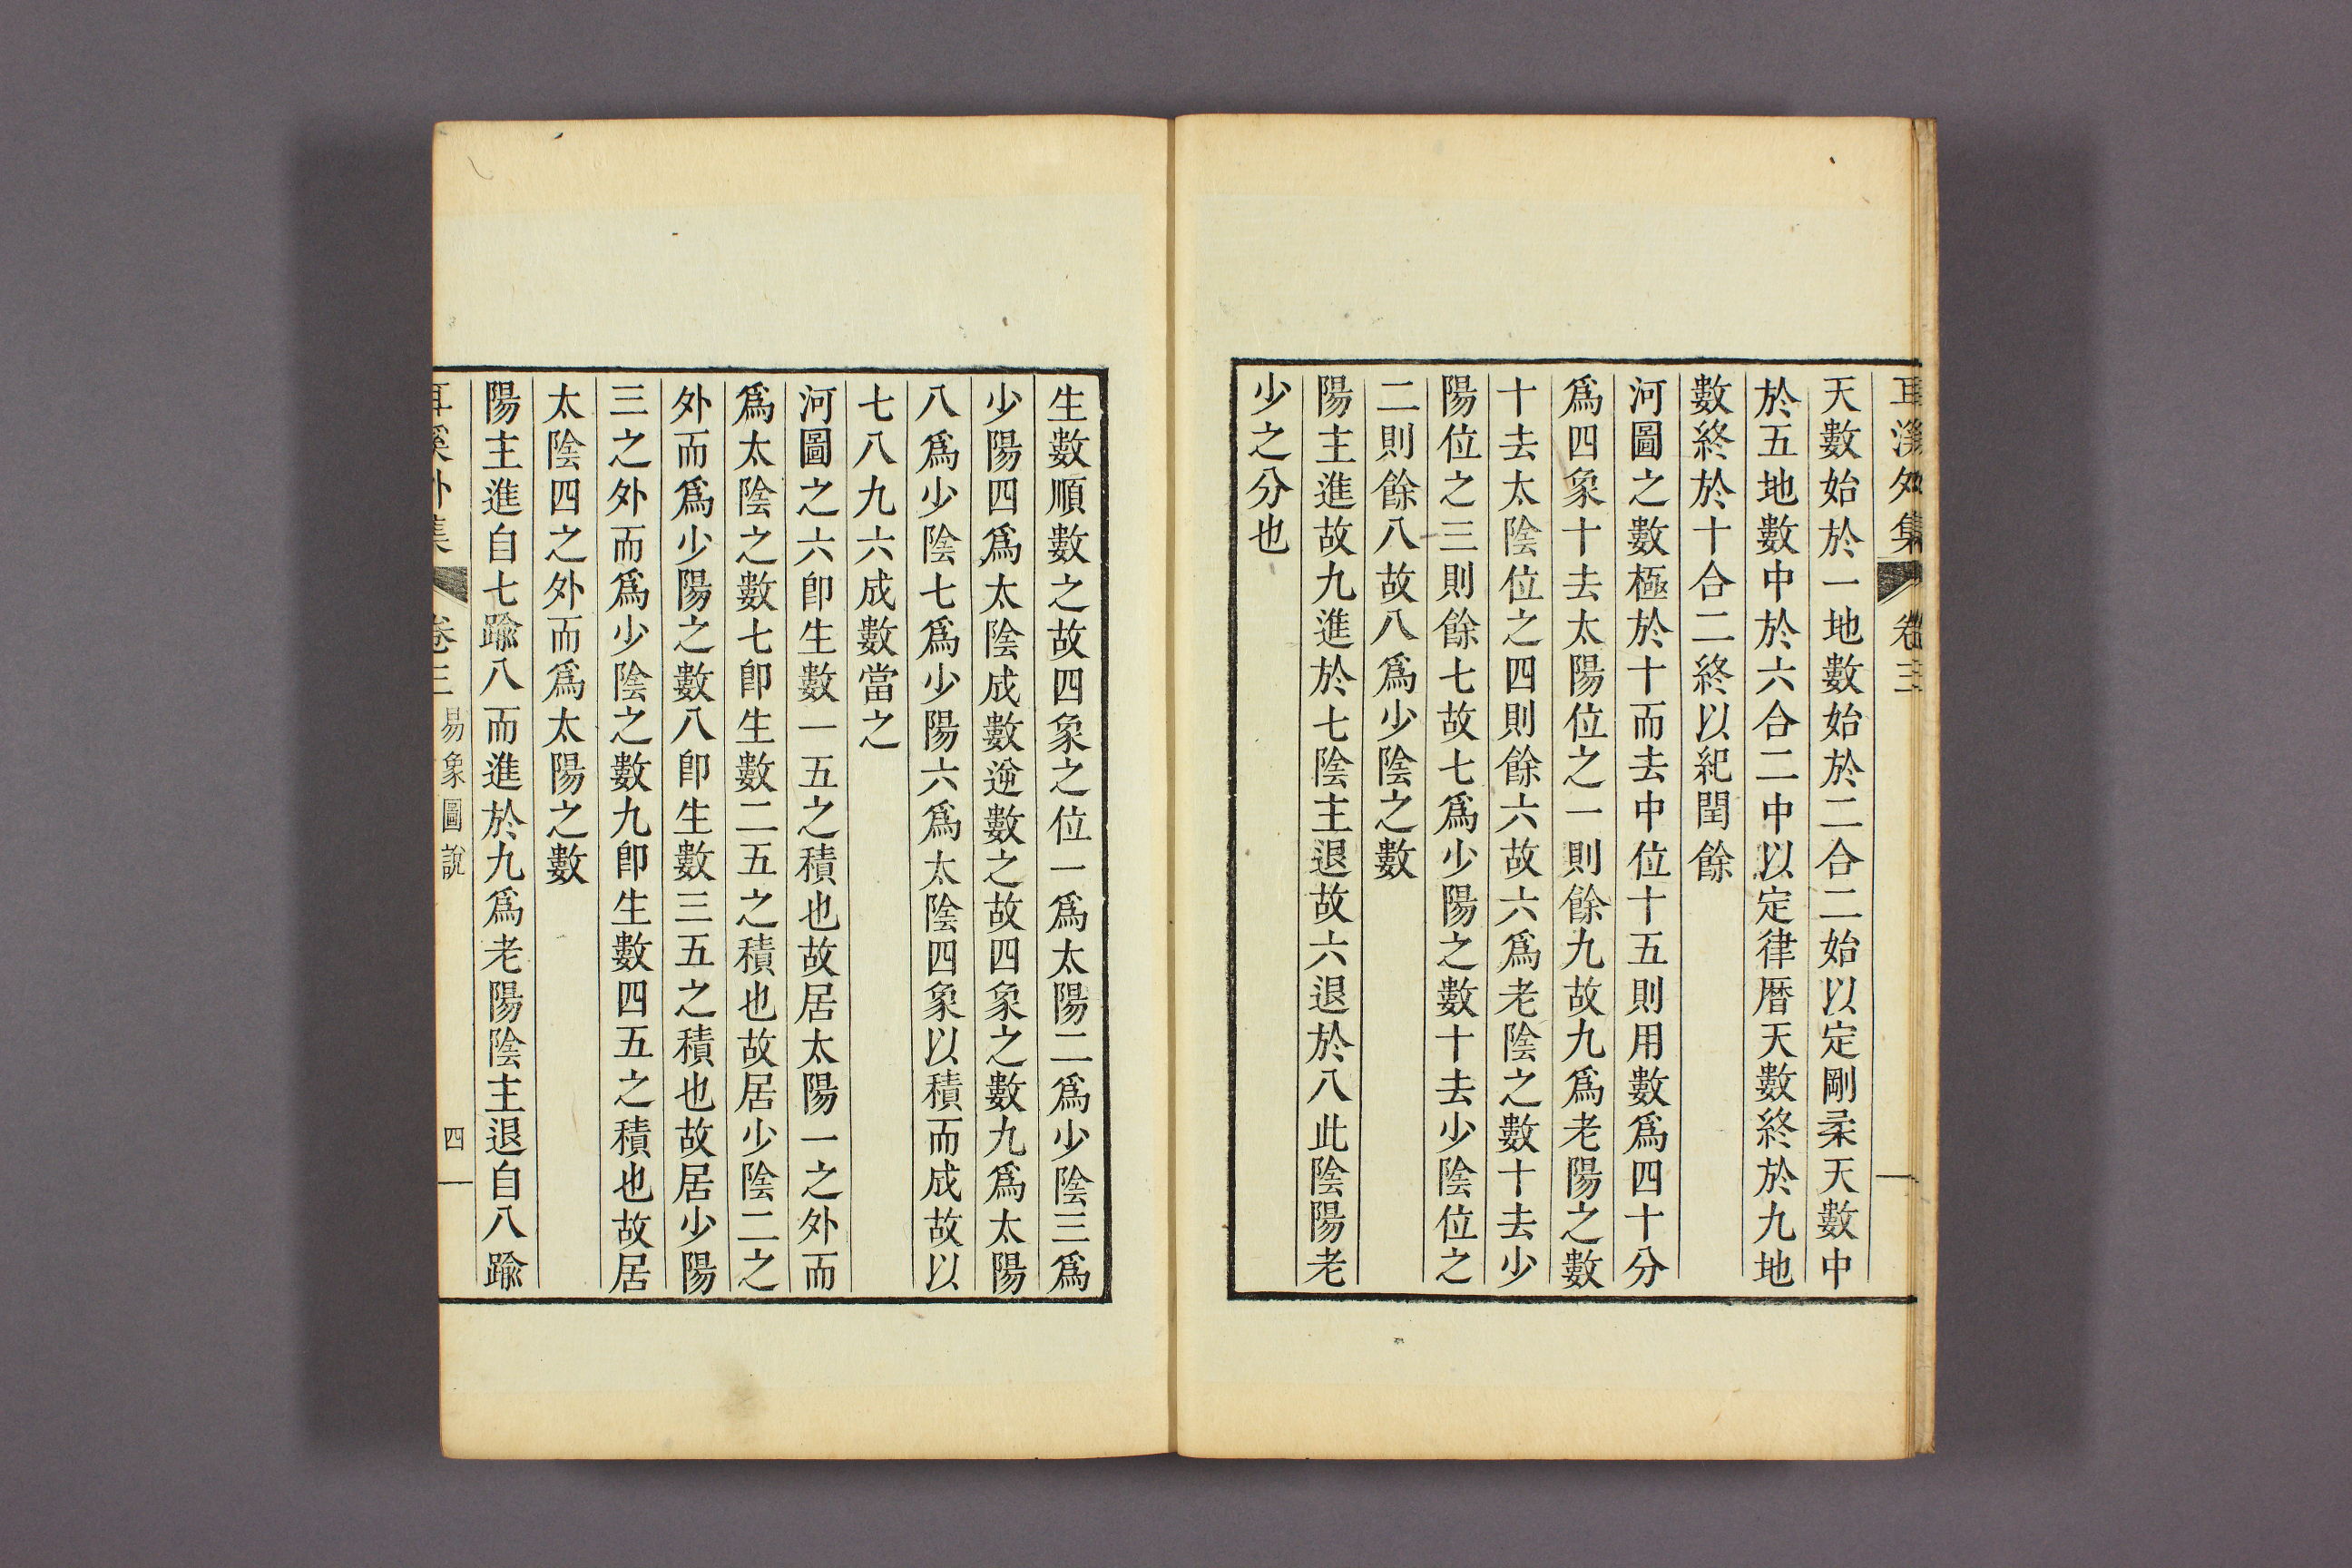 耳溪外集 卷三
天數始於一地數始於二合二始以定剛柔天數中
於五地數中於六合二中以定律暦天數終於九地
數終於十合二終以紀閏餘
河圖之數極於十而去中位十五則用數爲四十分
爲四象十去太陽位之一則餘九故九爲老陽之數
十去太陰位之四則餘六故六爲老陰之數十去少
陽位之三則餘七故七爲少陽之數十去少陰位之
二則餘八故八爲少陰之數
陽主進故九進於七陰主退故六退於八此陰陽老
少之分也
生數順數之故四象之位一爲太陽二爲少陰三爲
少陽四爲太陰成數逆數之故四象之數九爲太陽
八爲少陰七爲少陽六爲太陰四象以積而成故以
七八九六成數當之
河圖之六卽生數一五之積也故居太陽一之外而
爲太陰之數七卽生數二五之積也故居少陰二之
外而爲少陽之數八卽生數三五之積也故居少陽
三之外而爲少陰之數九卽生數四五之積也故居
太陰四之外而爲太陽之數
陽主進自七踰八而進於九爲老陽陰主退自八踰
耳溪外集 卷三 易象圖說 四